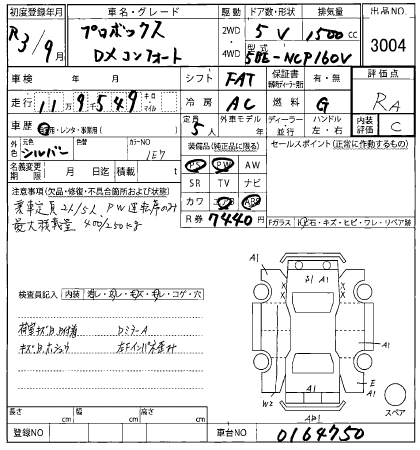 初度登録年月
車名・グレード
駆動
ドア数・形状
排気量
出品NO
R3/9月
プロボックス
DXコンフォート
2WD
4WD
5V
1500cc
型式
5BE-NCP160V
3004
車検 年 月
シフト FAT
保証書 有・無
評価点
走行 11万9千549キロ・マイル
冷房 AC
燃料 G
RA
車歴 自家用・レンタ・事業用( )
定員 5人
外車モデル 年
ディーラー 並行
ハンドル 左・右
内装評価 C
外色 元色 シルバー
色替
カラーNO 1E7
装備品(純正品に限る)
セールスポイント(正常に動作するもの)
名義変更期限 月 日迄
積載 t
PS PW AW
SR TV ナビ
カワ エアB ABS
注意事項(欠品・修復・不具合箇所および状態)
乗車定員2人/5人、PW運転席のみ
最大積載量 400/250kg
R券 7440円
Fガラス 飛石・キズ・ヒビ・ワレ・リペア跡
検査員記入 内装
荷室キズ
キズ
DミラーA
A1
A1
A1
E
A1
W2
A1
スペア
長さ cm
幅 cm
高さ cm
登録NO
車台NO
0164750